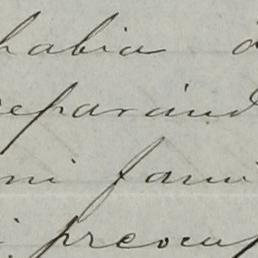 habia
eparand
mi fami
preocup